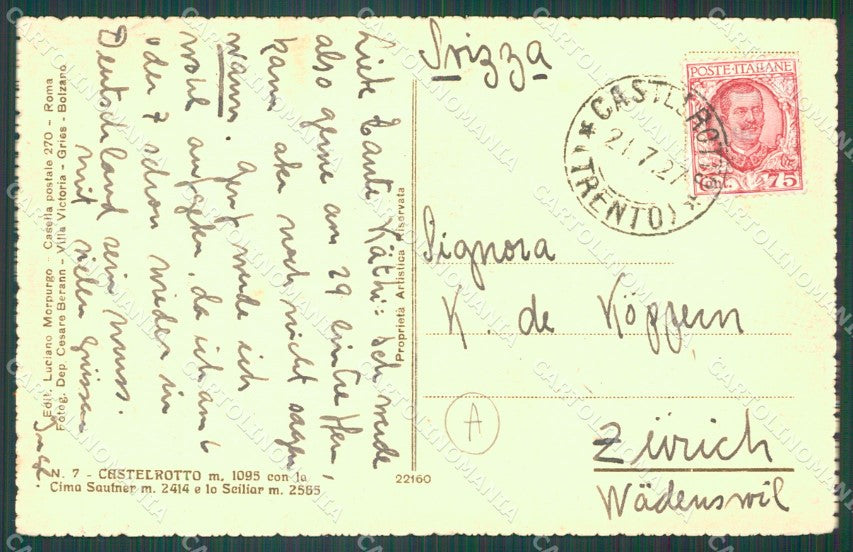 Liebe Tante Käthi: Ich werde
also gerne am 29 eintreffen,
kann aber noch nicht sagen
wann. Gut werde ich
wohl da ich am 6
oder 7 schon wieder in
Deutschland sein muss.
mit vielen Grüssen
Edit. Luciano Morpurgo - Casella postale 270 - Roma
Fotog. Dep. Cesare Berann - Villa Victoria - Gries - Bolzano
N. 7 - CASTELROTTO m. 1095 con la
Cima Sautner m. 2414 e lo Sciliar m. 2565
22160
Proprietà Artistica Riservata
Svizza
POSTE·ITALIANE
CENT. 75
CASTELROTTO
21.7.27
(TRENTO)
Signora
K. de Köppern
A
Zürich
Wädenswil
CARTOLINOMANIA